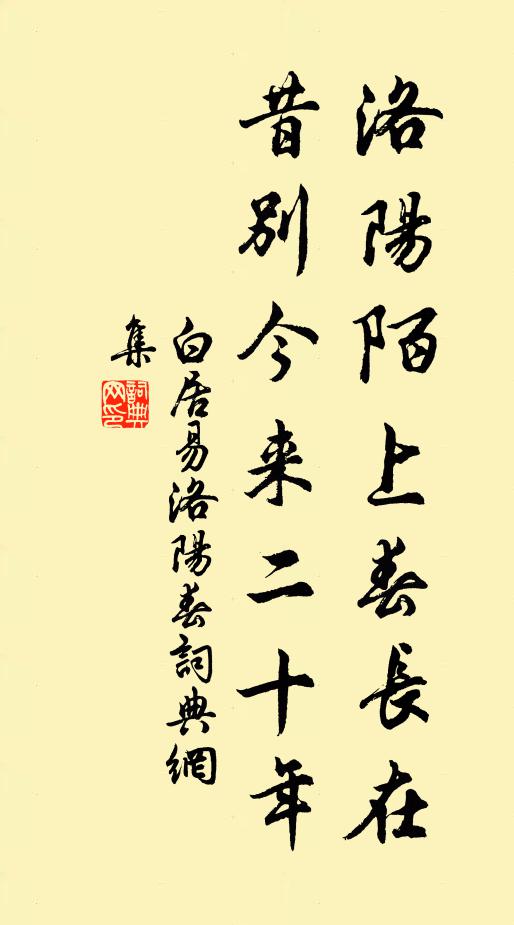 洛陽陌上春長在
昔別今来二十年
白居易洛陽春詞典網
集
詞典
网印